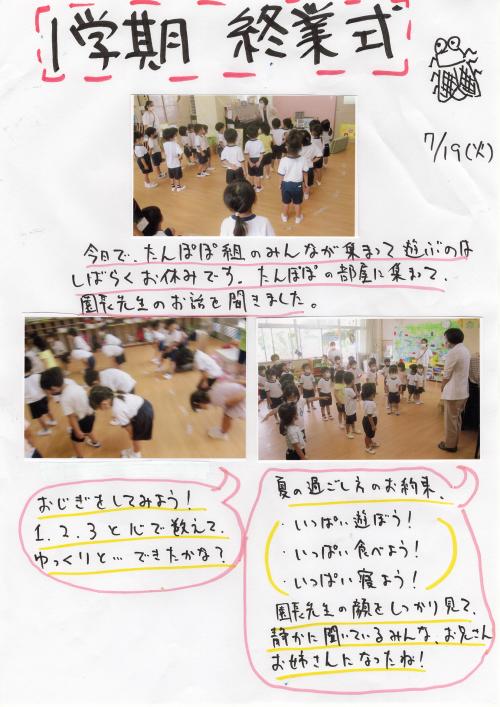 1学期 終業式
7/19(火)
今日で、たんぽぽ組のみんなが集まって遊ぶのは
しばらくお休みです。たんぽぽの部屋に集まって、
園長先生のお話を聞きました。
おじぎをしてみよう!
1.2.3と心で数えて、
ゆっくりと…できたかな?
夏の過ごし方のお約束、
・いっぱい遊ぼう!
・いっぱい食べよう!
・いっぱい寝よう!
園長先生の顔をしっかり見て、
静かに聞いているみんな、お兄さん
お姉さんになったね!